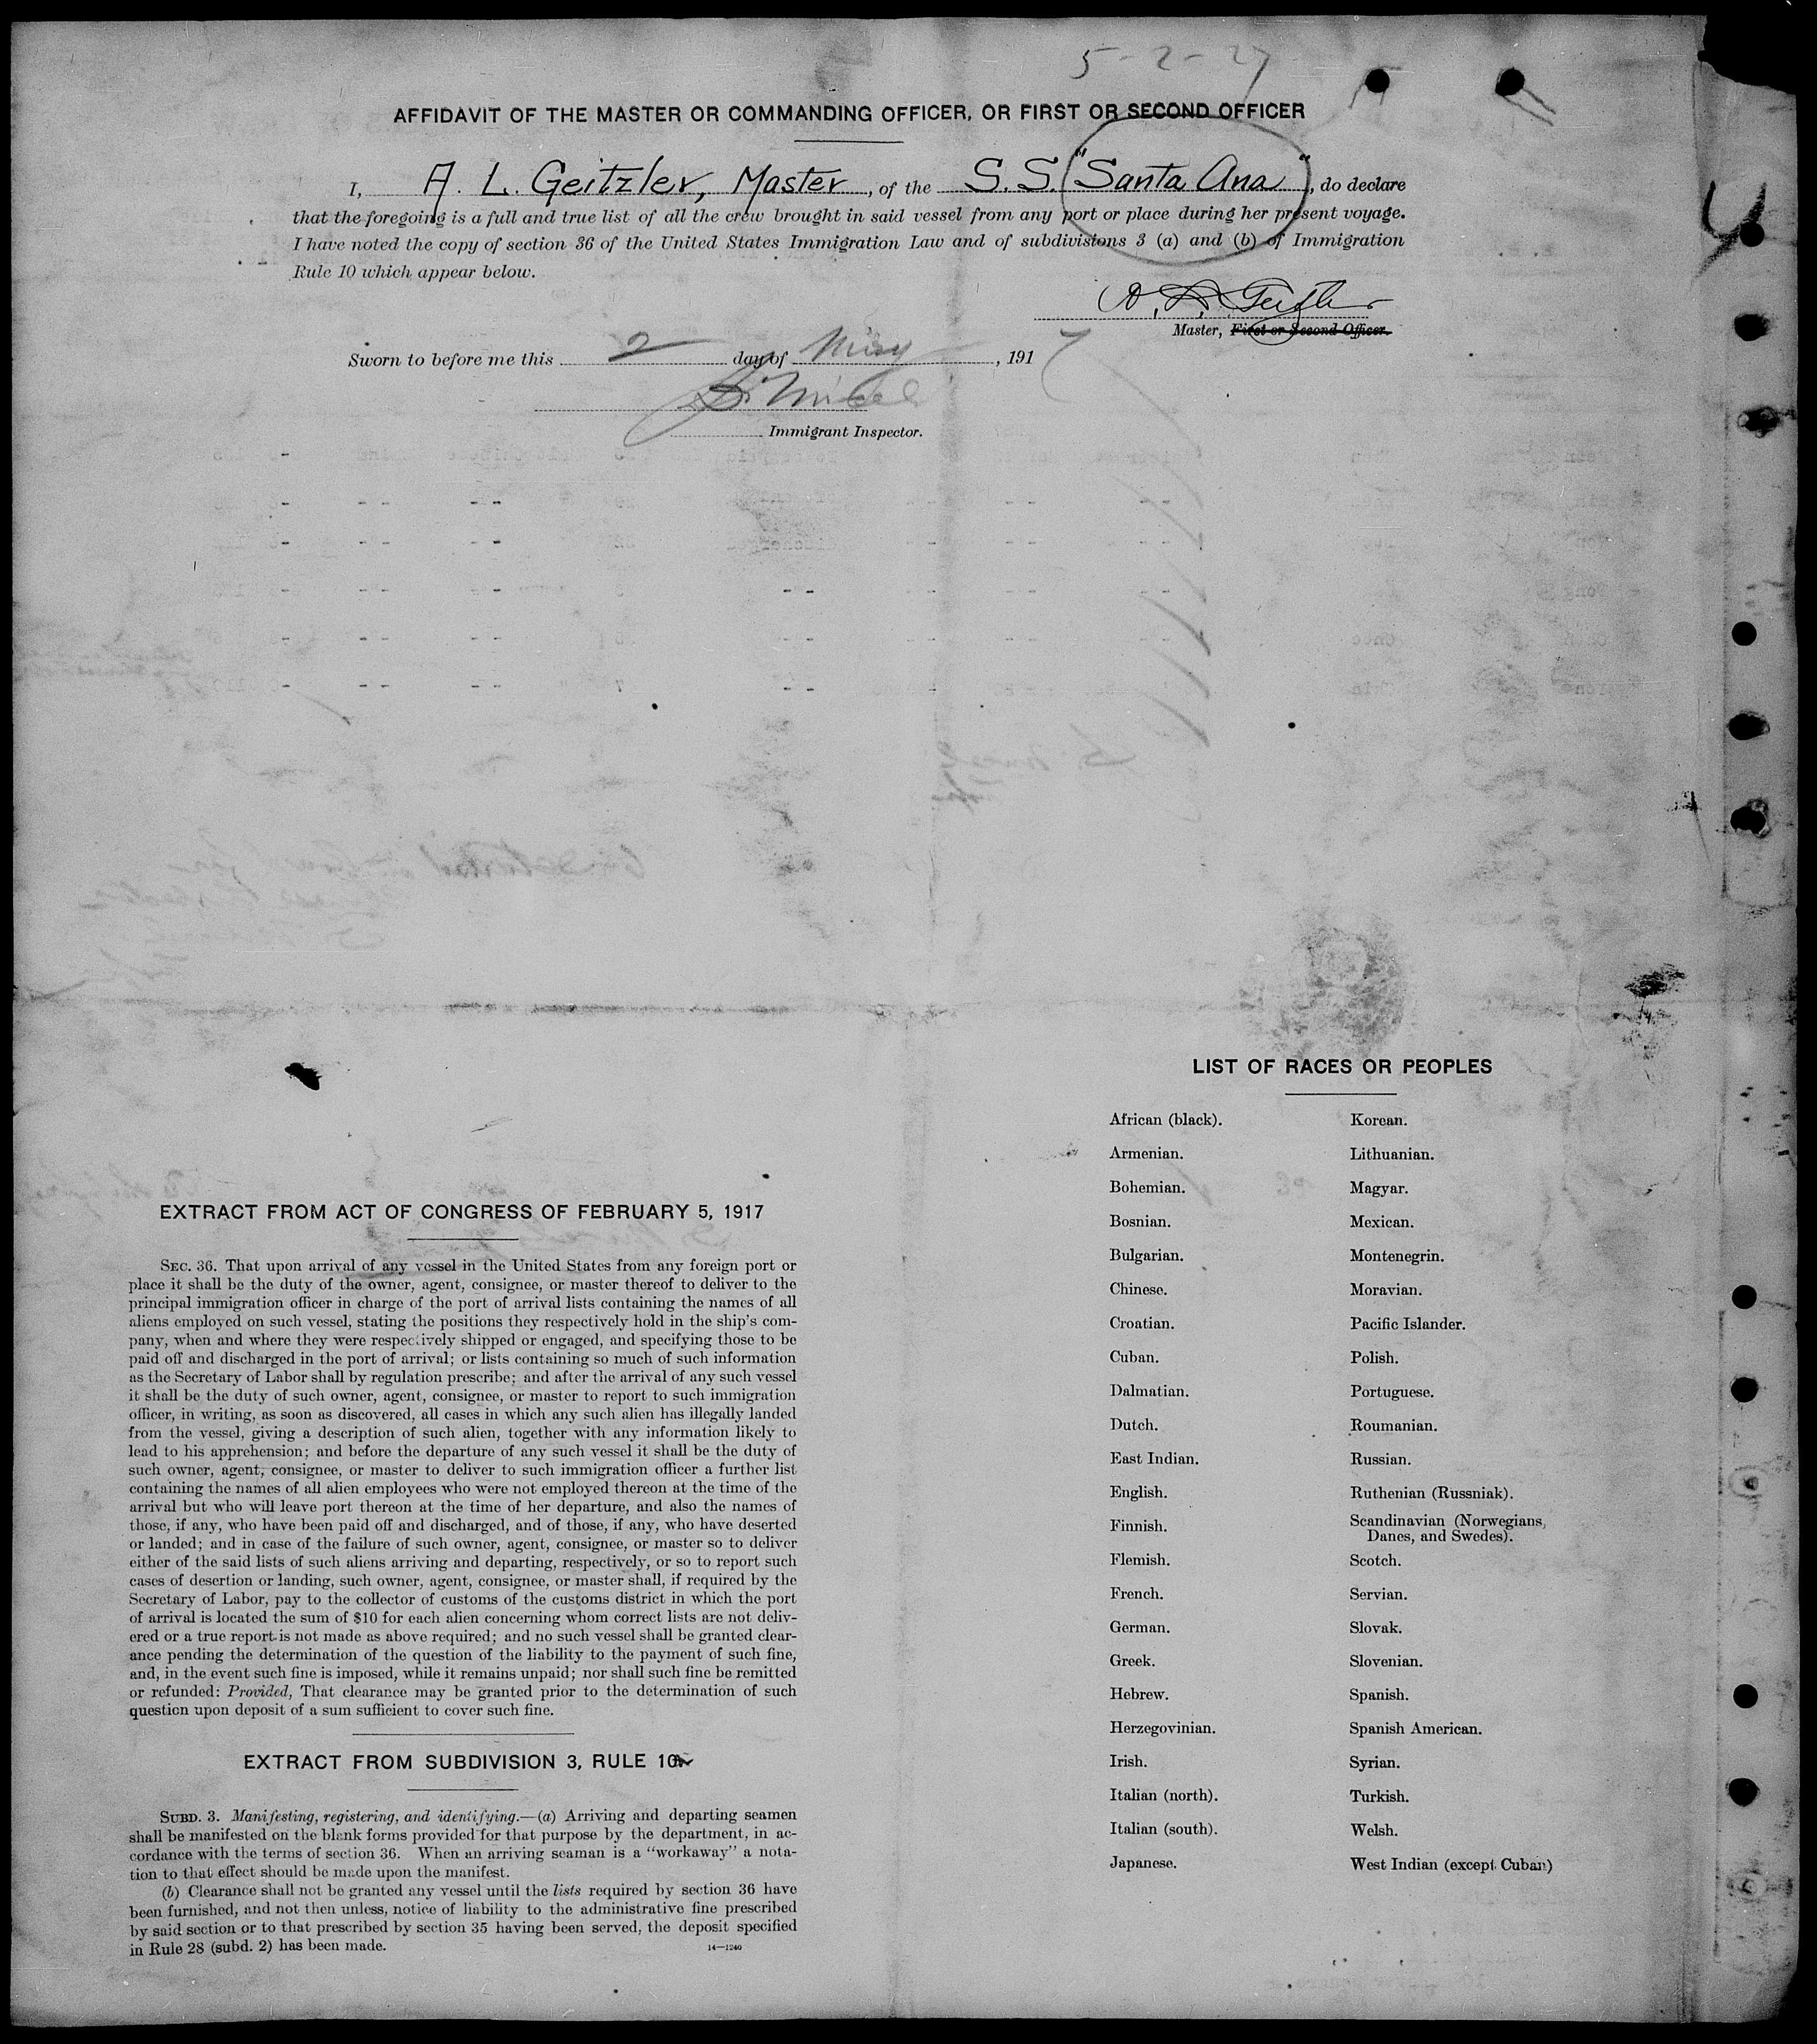 5-2-27
AFFIDAVIT OF THE MASTER OR COMMANDING OFFICER, OR FIRST OR SECOND OFFICER
I, A. L. Geitzler, Master, of the S.S. "Santa Ana", do declare
that the foregoing is a full and true list of all the crew brought in said vessel from any port or place during her present voyage.
I have noted the copy of section 36 of the United States Immigration Law and of subdivisions 3 (a) and (b) of Immigration
Rule 10 which appear below.
Master, First or Second Officer.
Sworn to before me this 2 day of May, 1917
Immigrant Inspector.
EXTRACT FROM ACT OF CONGRESS OF FEBRUARY 5, 1917
SEC. 36. That upon arrival of any vessel in the United States from any foreign port or
place it shall be the duty of the owner, agent, consignee, or master thereof to deliver to the
principal immigration officer in charge of the port of arrival lists containing the names of all
aliens employed on such vessel, stating the positions they respectively hold in the ship's com-
pany, when and where they were respectively shipped or engaged, and specifying those to be
paid off and discharged in the port of arrival; or lists containing so much of such information
as the Secretary of Labor shall by regulation prescribe; and after the arrival of any such vessel
it shall be the duty of such owner, agent, consignee, or master to report to such immigration
officer, in writing, as soon as discovered, all cases in which any such alien has illegally landed
from the vessel, giving a description of such alien, together with any information likely to
lead to his apprehension; and before the departure of any such vessel it shall be the duty of
such owner, agent, consignee, or master to deliver to such immigration officer a further list
containing the names of all alien employees who were not employed thereon at the time of the
arrival but who will leave port thereon at the time of her departure, and also the names of
those, if any, who have been paid off and discharged, and of those, if any, who have deserted
or landed; and in case of the failure of such owner, agent, consignee, or master so to deliver
either of the said lists of such aliens arriving and departing, respectively, or so to report such
cases of desertion or landing, such owner, agent, consignee, or master shall, if required by the
Secretary of Labor, pay to the collector of customs of the customs district in which the port
of arrival is located the sum of $10 for each alien concerning whom correct lists are not deliv-
ered or a true report is not made as above required; and no such vessel shall be granted clear-
ance pending the determination of the question of the liability to the payment of such fine,
and, in the event such fine is imposed, while it remains unpaid; nor shall such fine be remitted
or refunded: Provided, That clearance may be granted prior to the determination of such
question upon deposit of a sum sufficient to cover such fine.
EXTRACT FROM SUBDIVISION 3, RULE 10
SUBD. 3. Manifesting, registering, and identifying.—(a) Arriving and departing seamen
shall be manifested on the blank forms provided for that purpose by the department, in ac-
cordance with the terms of section 36. When an arriving seaman is a "workaway" a nota-
tion to that effect should be made upon the manifest.
(b) Clearance shall not be granted any vessel until the lists required by section 36 have
been furnished, and not then unless, notice of liability to the administrative fine prescribed
by said section or to that prescribed by section 35 having been served, the deposit specified
in Rule 28 (subd. 2) has been made.
14—1240
LIST OF RACES OR PEOPLES
African (black).
Armenian.
Bohemian.
Bosnian.
Bulgarian.
Chinese.
Croatian.
Cuban.
Dalmatian.
Dutch.
East Indian.
English.
Finnish.
Flemish.
French.
German.
Greek.
Hebrew.
Herzegovinian.
Irish.
Italian (north).
Italian (south).
Japanese.
Korean.
Lithuanian.
Magyar.
Mexican.
Montenegrin.
Moravian.
Pacific Islander.
Polish.
Portuguese.
Roumanian.
Russian.
Ruthenian (Russniak).
Scandinavian (Norwegians,
Danes, and Swedes).
Scotch.
Servian.
Slovak.
Slovenian.
Spanish.
Spanish American.
Syrian.
Turkish.
Welsh.
West Indian (except Cuban)